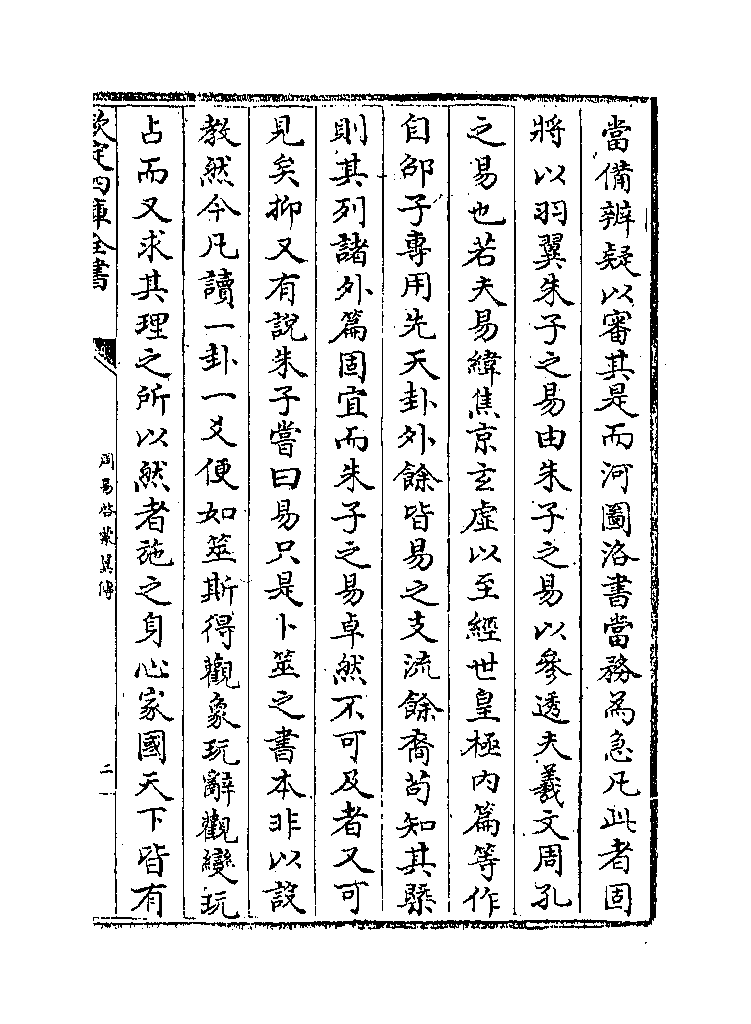 當備辨疑以審其是而河圖洛書當務為急凡此者固
將以羽翼朱子之易由朱子之易以參透夫羲文周孔
之易也若夫易緯焦京玄虛以至經世皇極内篇等作
自邵子專用先天卦外餘皆易之支流餘裔苟知其槩
則其列諸外篇固宜而朱子之易卓然不可及者又可
見矣抑又有説朱子嘗曰易只是卜筮之書本非以設
教然今凡讀一卦一爻便如筮斯得觀象玩辭觀變玩
占而又求其理之所以然者施之身心家國天下皆有
欽定四庫全書
周易啓蒙翼傳
二